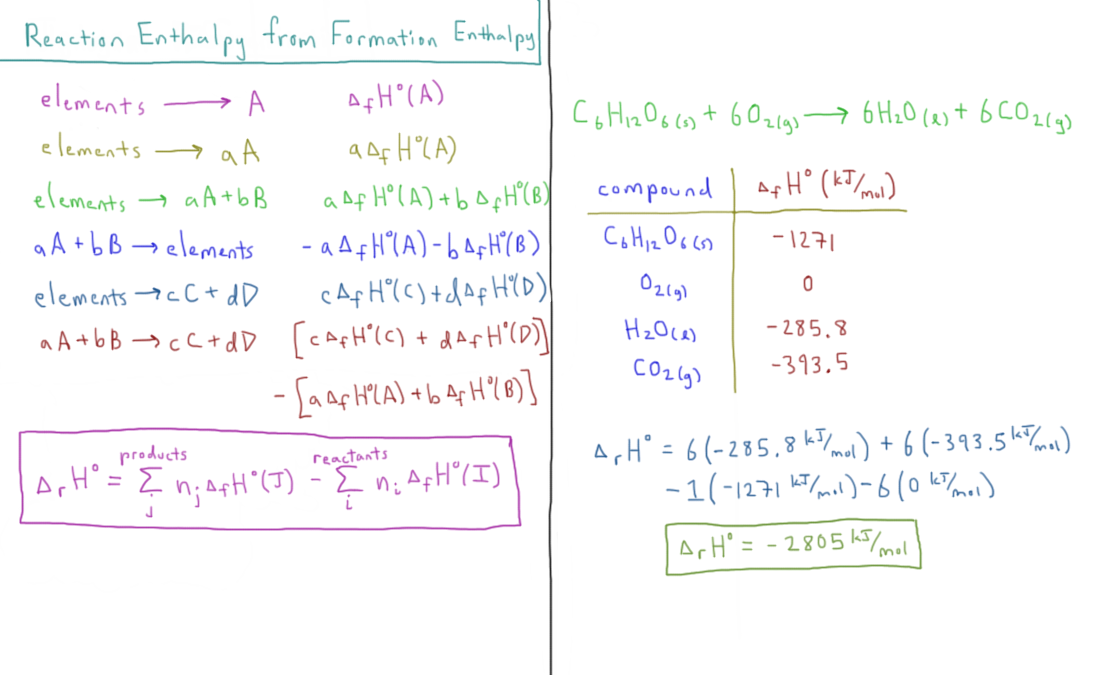 Reaction Enthalpy from Formation Enthalpy
elements ⟶ A ΔfH°(A)
elements ⟶ aA aΔfH°(A)
elements → aA+bB aΔfH°(A)+bΔfH°(B)
aA+bB → elements -aΔfH°(A)-bΔfH°(B)
elements → cC+dD cΔfH°(C)+dΔfH°(D)
aA+bB → cC+dD [cΔfH°(C) + dΔfH°(D)]
-[aΔfH°(A)+bΔfH°(B)]
products reactants
ΔrH° = Σ njΔfH°(J) - Σ niΔfH°(I)
j i
C6H12O6(s) + 6O2(g) ⟶ 6H2O(l) + 6CO2(g)
compound ΔfH° (kJ/mol)
C6H12O6(s) -1271
O2(g) 0
H2O(l) -285.8
CO2(g) -393.5
ΔrH° = 6(-285.8 kJ/mol) + 6(-393.5 kJ/mol)
-1(-1271 kJ/mol)-6(0 kJ/mol)
ΔrH° = -2805 kJ/mol